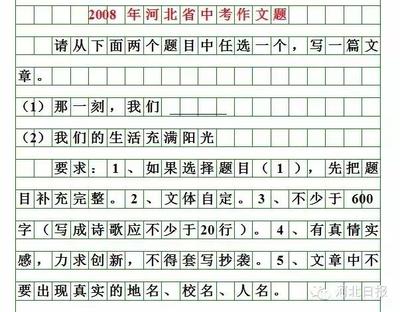 2008 年河北省中考作文题
请从下面两个题目中任选一个，写一篇文
章。
（1）那一刻，我们 ________
（2）我们的生活充满阳光
要求：1、如果选择题目（1），先把题
目补充完整。2、文体自定。3、不少于 600
字（写成诗歌应不少于20行）。4、有真情实
感，力求创新，不得套写抄袭。5、文章中不
要出现真实的地名、校名、人名。
河北日报